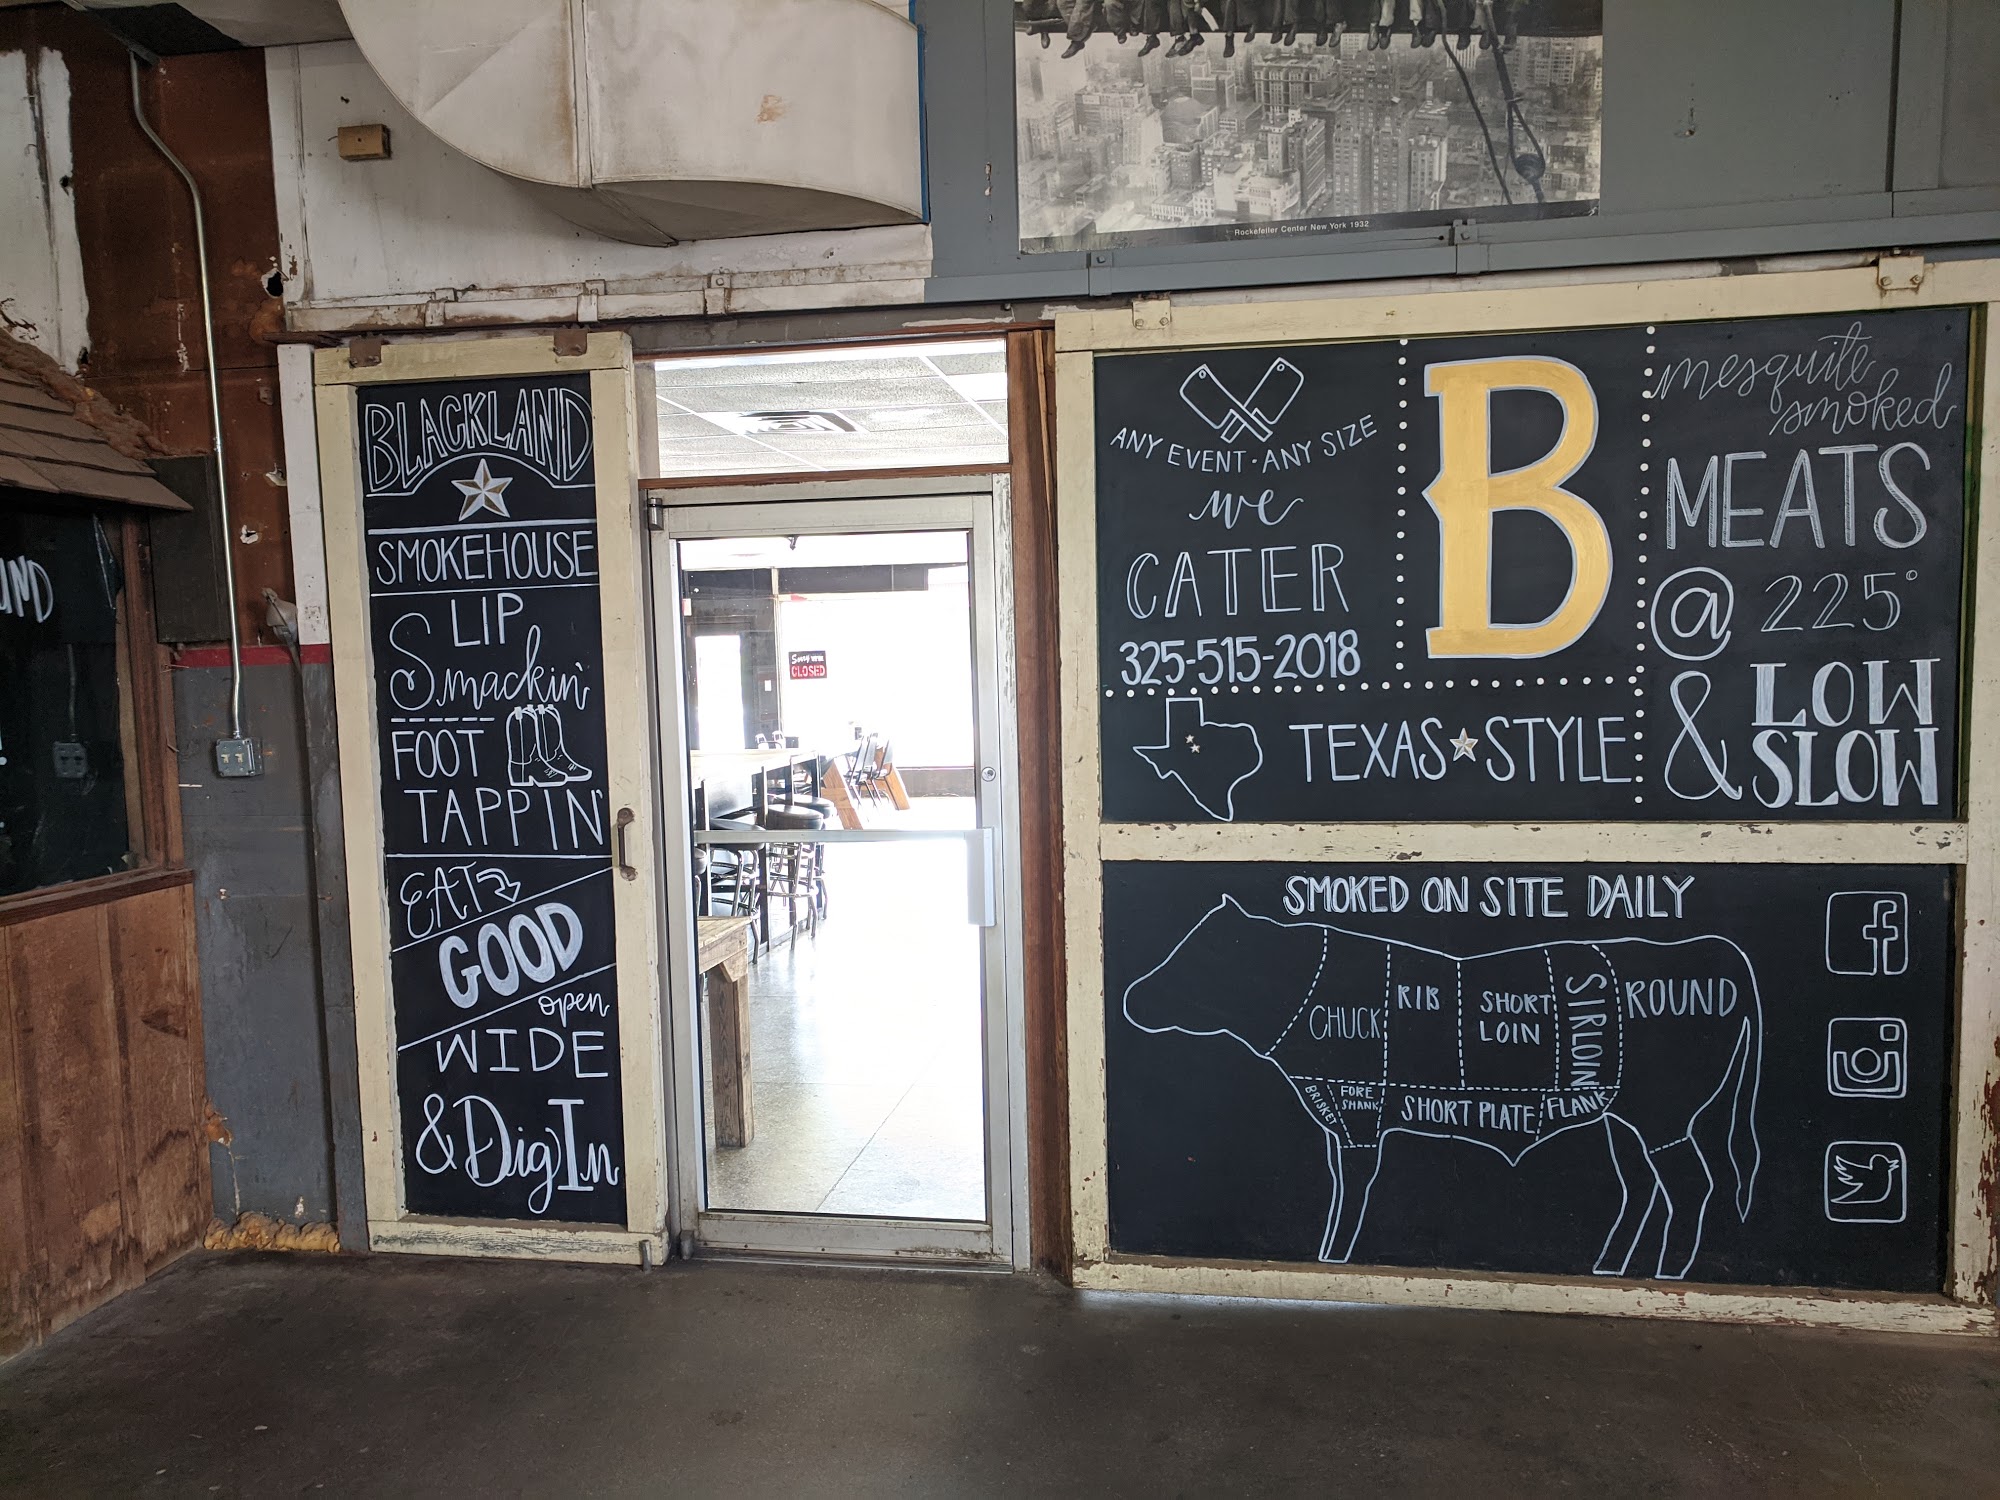 Rockefeller Center New York 1932
BLACKLAND
SMOKEHOUSE
LIP
Smackin'
FOOT
TAPPIN'
EAT
GOOD
open
WIDE
& Dig In
Sorry WE'RE
CLOSED
ANY EVENT · ANY SIZE
we
CATER
325-515-2018
B
TEXAS STYLE
mesquite
smoked
MEATS
@ 225°
& LOW
SLOW
SMOKED ON SITE DAILY
CHUCK
RIB
SHORT
LOIN
SIRLOIN
ROUND
BRISKET
FORE
SHANK
SHORT PLATE
FLANK
f